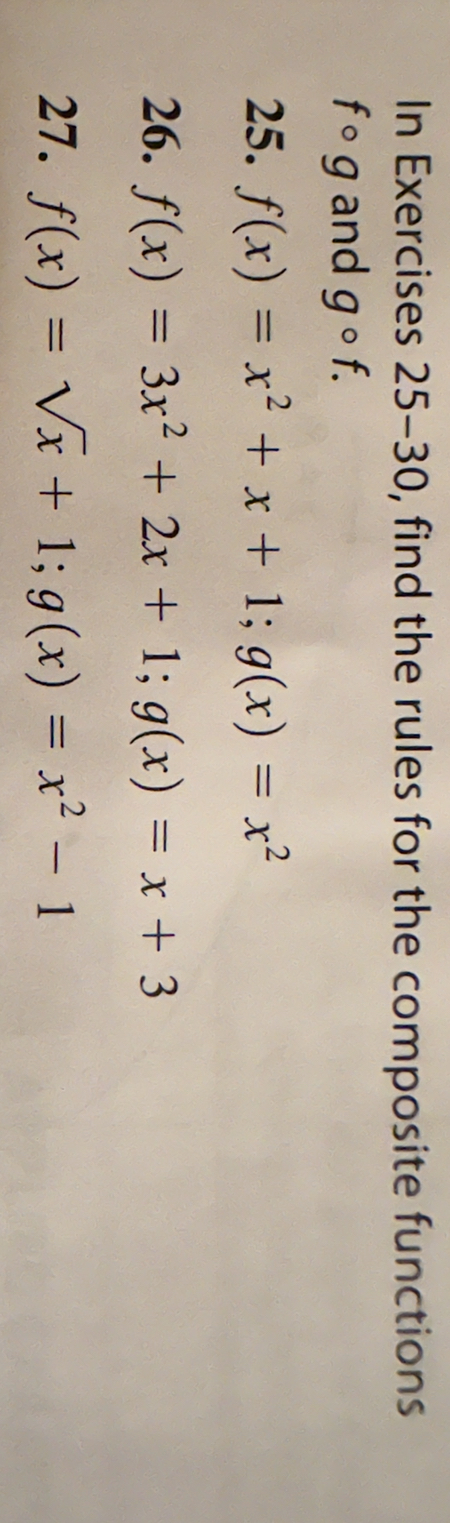 In Exercises 25–30, find the rules for the composite functions
f ∘ g and g ∘ f.
25. f(x) = x² + x + 1; g(x) = x²
26. f(x) = 3x² + 2x + 1; g(x) = x + 3
27. f(x) = √x + 1; g(x) = x² − 1